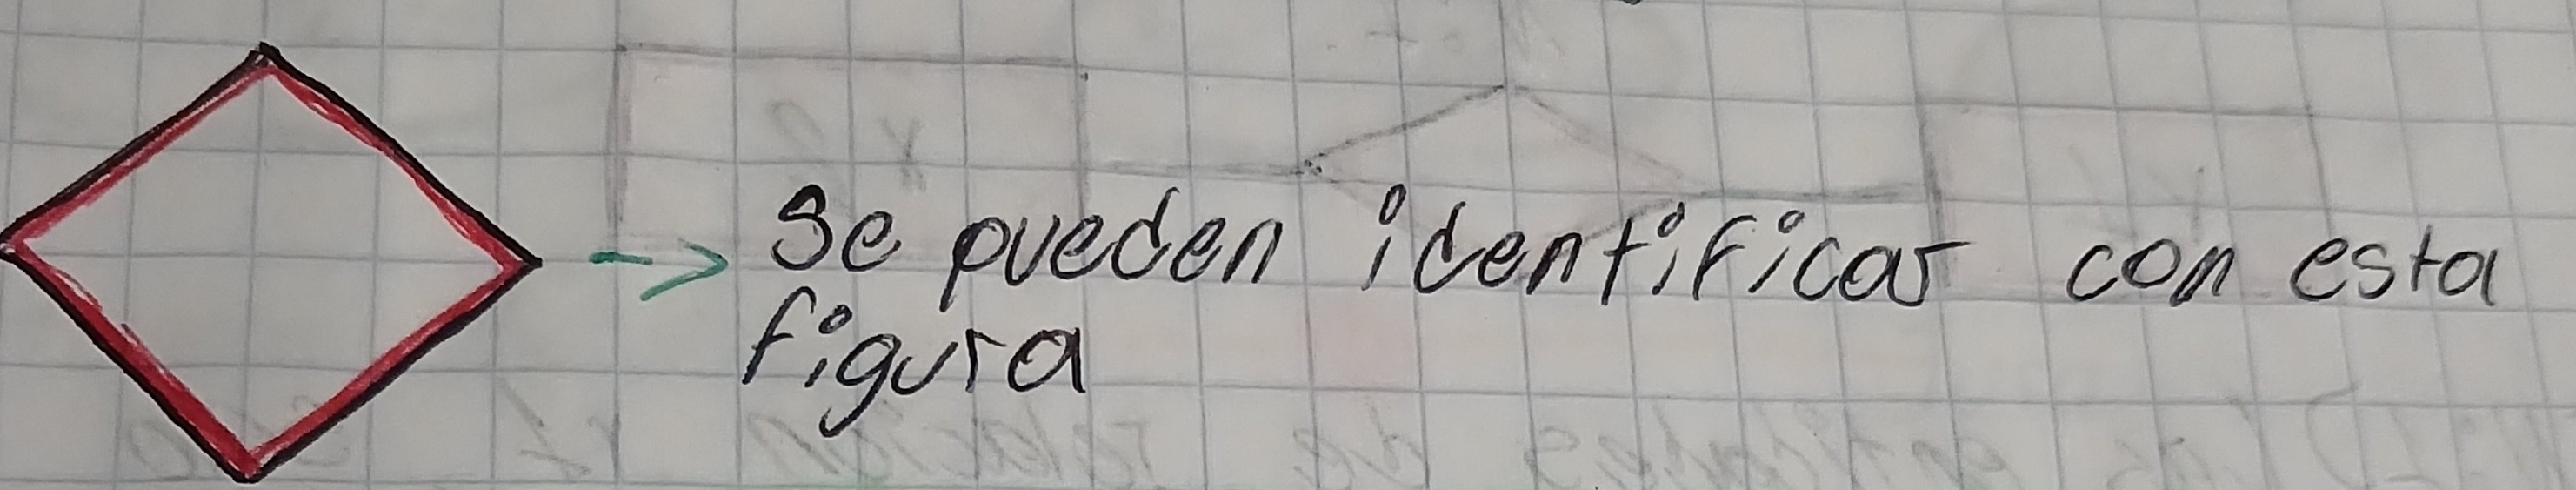 Se pueden identificar con esta
figura